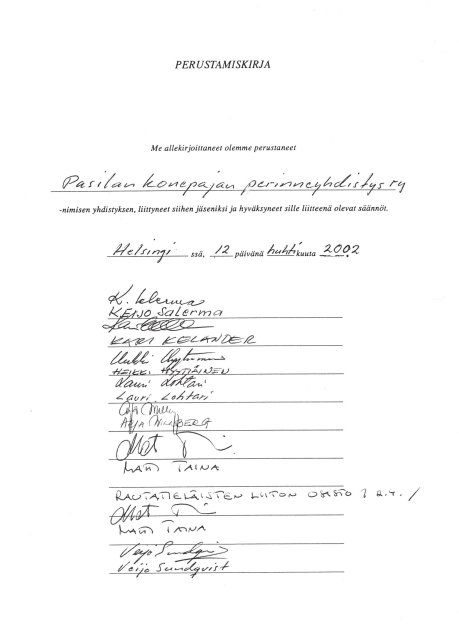 PERUSTAMISKIRJA
Me allekirjoittaneet olemme perustaneet
Pasilan konepajan perinneyhdistys ry
-nimisen yhdistyksen, liittyneet siihen jäseniksi ja hyväksyneet sille liitteenä olevat säännöt.
Helsingi ssä, 12 päivänä huhti kuuta 2002
K. Salerma
KEIJO Salerma
KARI KELANDER
HEIKKI HYYTIÄINEN
Lauri Lohtari
Lauri Lohtari
MATTI TAINA
RAUTATIELÄISTEN LIITON OSASTO 1 R.Y. /
MATTI TAINA
Veijo Sundqvist
Veijo Sundqvist